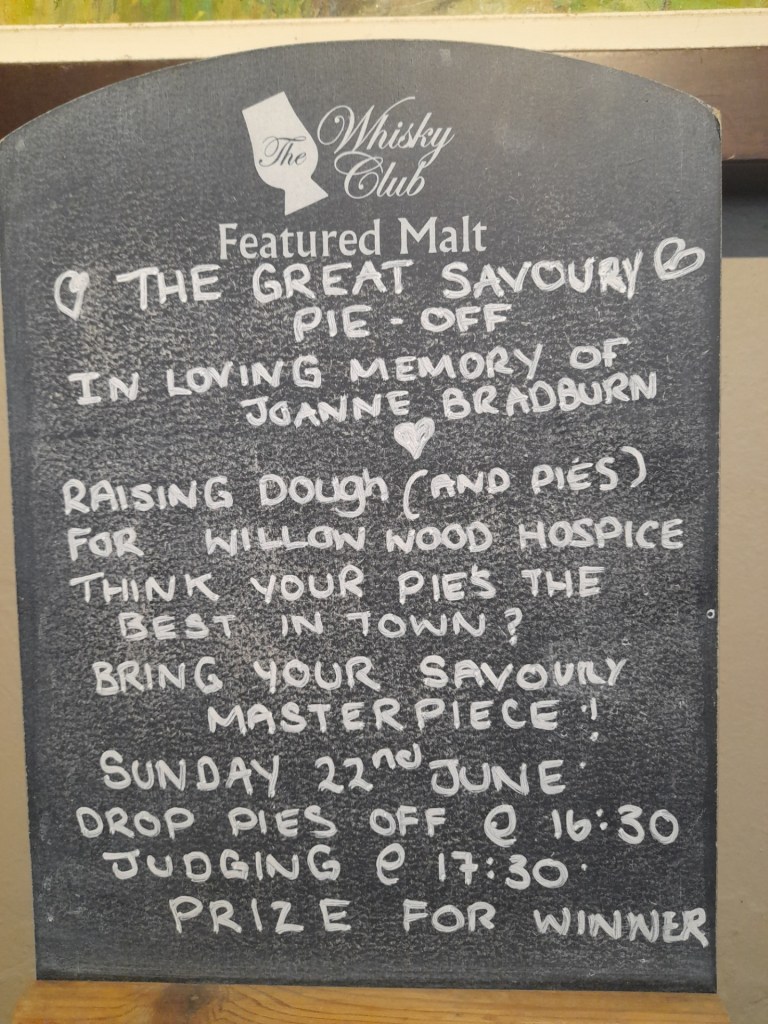 The Whisky
Club
Featured Malt
THE GREAT SAVOURY
PIE - OFF
IN LOVING MEMORY OF
JOANNE BRADBURN
RAISING DOUGH (AND PIES)
FOR WILLOW WOOD HOSPICE
THINK YOUR PIE'S THE
BEST IN TOWN?
BRING YOUR SAVOURY
MASTERPIECE!
SUNDAY 22nd JUNE
DROP PIES OFF @ 16:30
JUDGING @ 17:30
PRIZE FOR WINNER